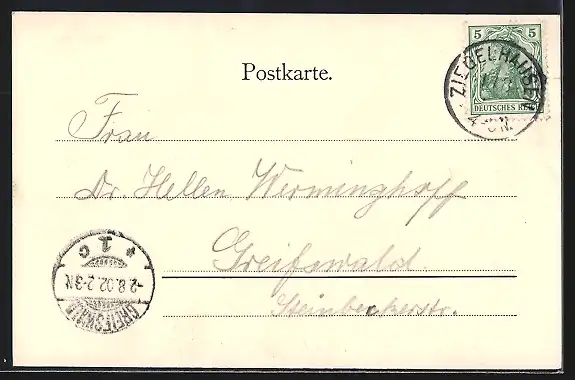 5 5
DEUTSCHES REICH
ZIEGELHAUSEN
Postkarte.
Frau
Dr. Hellen Werminghoff
Greifswald
Steinbeckerstr.
* 1 c
-2.8.02.2-3N
GREIFSWALD